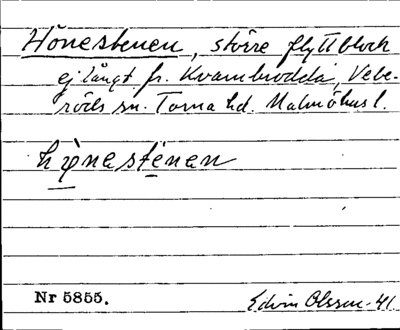 Hönestenen, större flyttblock
ej långt fr. Kvarnbrodda, Vebe-
röds sn. Torna hd. Malmöhus l.
hǫ̀nesténen
Nr 5855.
Edvin Olsson - 41